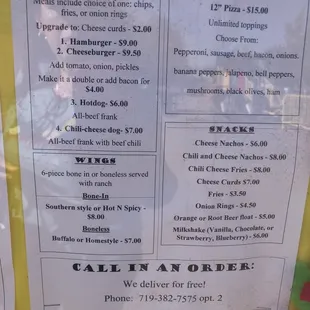 Meals include choice of one: chips,
fries, or onion rings
Upgrade to: Cheese curds - $2.00
1. Hamburger - $9.00
2. Cheeseburger - $9.50
Add tomato, onion, pickles
Make it a double or add bacon for
$4.00
3. Hotdog- $6.00
All-beef frank
4. Chili-cheese dog- $7.00
All-beef frank with beef chili
WINGS
6-piece bone in or boneless served
with ranch
Bone-In
Southern style or Hot N Spicy -
$8.00
Boneless
Buffalo or Homestyle - $7.00
12" Pizza - $15.00
Unlimited toppings
Choose From:
Pepperoni, sausage, beef, bacon, onions.
banana peppers, jalapeno, bell peppers,
mushrooms, black olives, ham
SNACKS
Cheese Nachos - $6.00
Chili and Cheese Nachos - $8.00
Chili Cheese Fries - $8.00
Cheese Curds $7.00
Fries - $3.50
Onion Rings - $4.50
Orange or Root Beer float - $5.00
Milkshake (Vanilla, Chocolate, or
Strawberry, Blueberry) - $6.00
CALL IN AN ORDER:
We deliver for free!
Phone: 719-382-7575 opt. 2